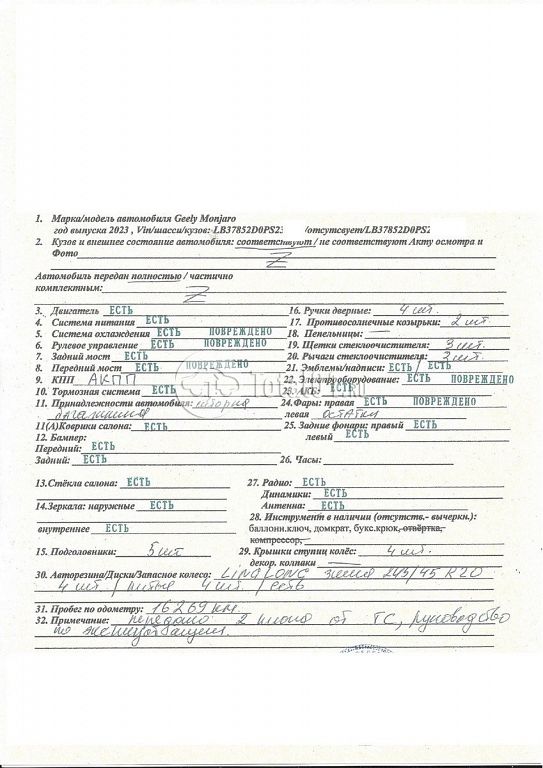 1. Марка/модель автомобиля Geely Monjaro
год выпуска 2023 , Vin/шасси/кузов: LB37852D0PS23 /отсутсвует/LB37852D0PS2
2. Кузов и внешнее состояние автомобиля: соответствуют / не соответствуют Акту осмотра и
Фото Z
Автомобиль передан полностью / частично
комплектным: Z
3. Двигатель ЕСТЬ 16. Ручки дверные: 4 шт.
4. Система питания ЕСТЬ 17. Противосолнечные козырьки: 2 шт
5. Система охлаждения ЕСТЬ ПОВРЕЖДЕНО 18. Пепельницы: —
6. Рулевое управление ЕСТЬ ПОВРЕЖДЕНО 19. Щетки стеклоочистителя: 3 шт.
7. Задний мост ЕСТЬ 20. Рычаги стеклоочистителя: 3 шт.
8. Передний мост ЕСТЬ ПОВРЕЖДЕНО 21. Эмблемы/надписи: ЕСТЬ / ЕСТЬ
9. КПП АКПП 22. Электрооборудование: ЕСТЬ ПОВРЕЖДЕНО
10. Тормозная система ЕСТЬ 23. АКБ: ЕСТЬ
11. Принадлежности автомобиля: шторка 24.Фары: правая ЕСТЬ ПОВРЕЖДЕНО
багажника левая остатки
11(А)Коврики салона: ЕСТЬ 25. Задние фонари: правый ЕСТЬ
12. Бампер: левый ЕСТЬ
Передний: ЕСТЬ
Задний: ЕСТЬ 26. Часы:
13.Стёкла салона: ЕСТЬ 27. Радио: ЕСТЬ
Динамики: ЕСТЬ
14.Зеркала: наружные ЕСТЬ Антенна: ЕСТЬ
28. Инструмент в наличии (отсутств.- вычеркн.):
внутреннее ЕСТЬ баллонн.ключ, домкрат, букс.крюк, отвёртка,
компрессор,
15. Подголовники: 5 шт 29. Крышки ступиц колёс: 4 шт.
декор. колпаки —
30. Авторезина/Диски/Запасное колесо: LINGLONG зима 245/45 R20
4 шт. / литые 4 шт. / есть
31. Пробег по одометру: 16269 км.
32. Примечание: передано 2 ключа от ТС, руководство
по эксплуатации.